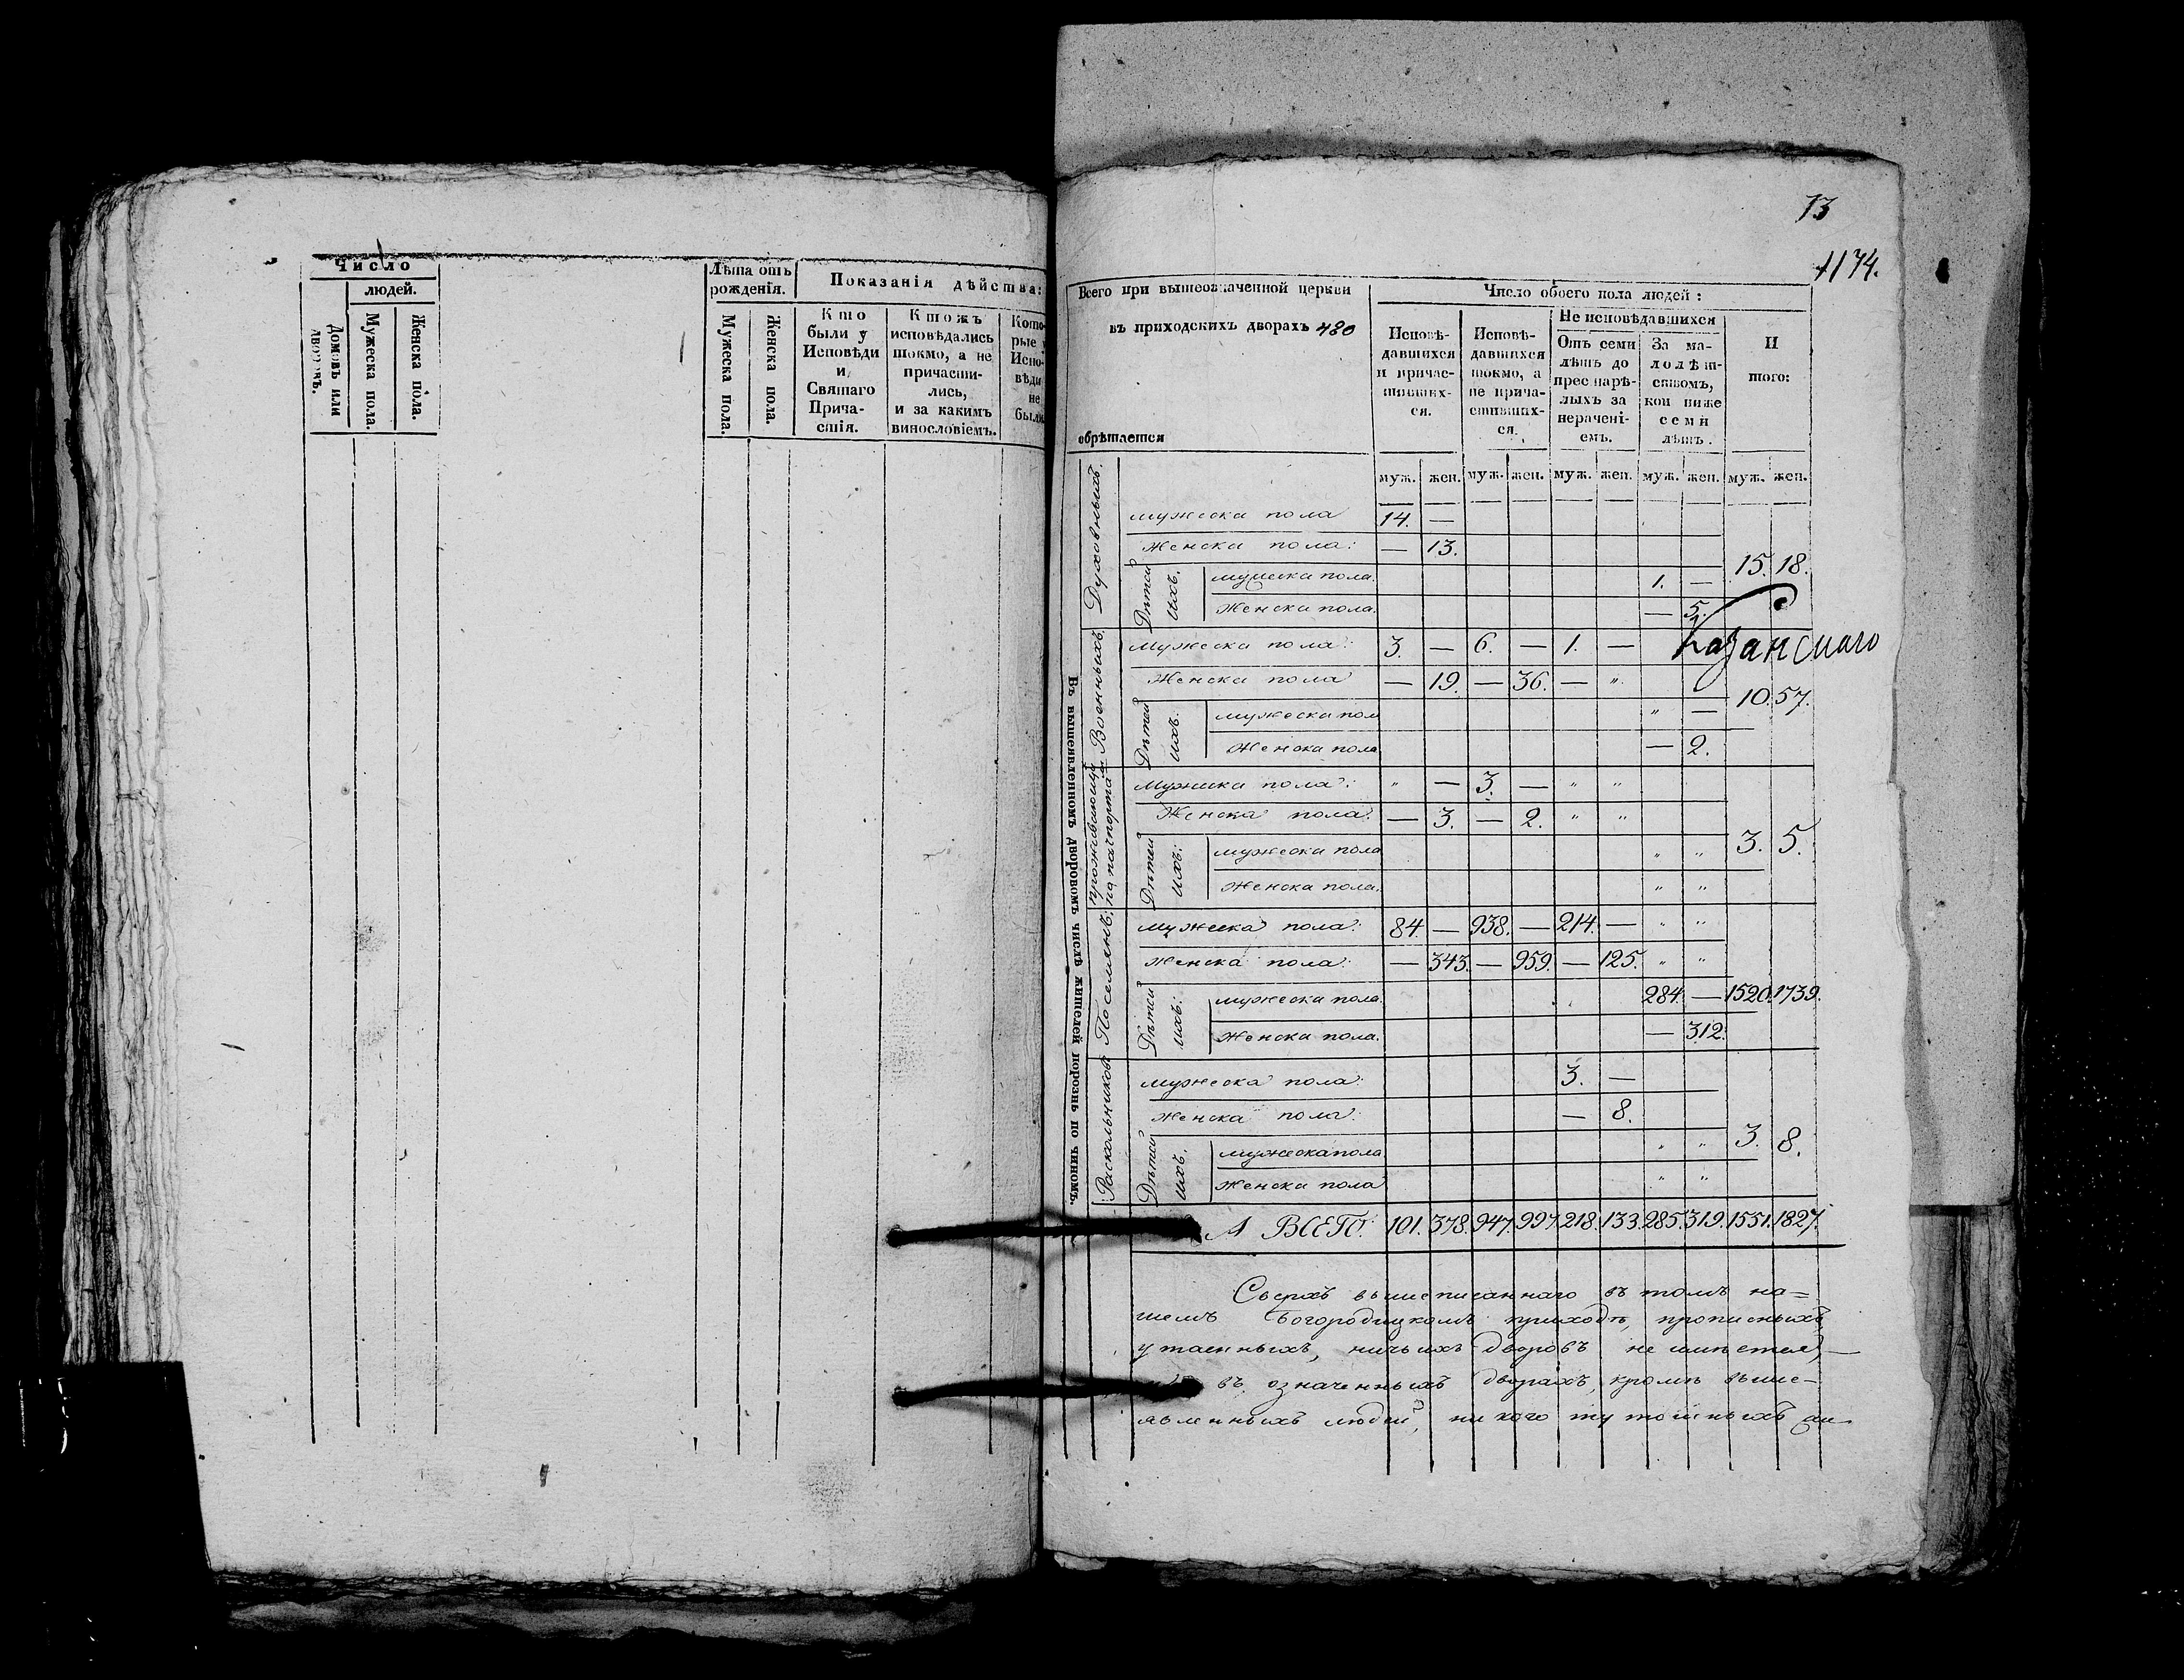 Число
людей.
Домовъ или дворовъ.
Мужеска пола.
Женска пола.
Лѣта отъ рожденія.
Мужеска пола.
Женска пола.
Показанія дѣйства:
Кто были у Исповѣди и Святаго Причастія.
Кто жъ исповѣдались токмо, а не причастились, и за какимъ винословіемъ.
Которые у Исповѣди не были
73
1174.
Всего при вышеозначенной церкви
въ приходскихъ дворахъ 480
обрѣтается
Число обоего пола людей:
Исповѣдавшихся и причастившихся.
Исповѣдавшихся токмо, а не причастившихся.
Не исповѣдавшихся
Отъ семи лѣтъ до престарѣлыхъ за нераченіемъ.
За малолѣтствомъ, кои ниже семи лѣтъ.
И того:
муж. жен. муж. жен. муж. жен. муж. жен. муж. жен.
Въ вышеявленномъ дворовомъ числѣ жителей порознь по чиномъ.
Духовныхъ.
мужеска пола 14. —
Женска пола: — 13.
Дѣтей ихъ.
мужеска пола. 1. —
Женска пола. — 5.
15. 18.
Казанскаго
Военныхъ.
Мужеска пола: 3. — 6. — 1. —
Женска пола — 19. — 36. — "
Дѣтей ихъ.
мужеска пол " —
Женска пола — 2.
10. 57.
проживающи
Мужеска пола: " — 3. — " "
Женска пола: — 3. — 2. " "
Дѣтей ихъ:
мужеска пола " "
Женска пола. " "
3. 5.
Поселянъ:
мужеска пола: 84. — 938. — 214. — " "
Женска пола: — 343. — 959. — 125. " "
Дѣтей ихъ:
мужеска пола. 284. — 1520. 1739.
Женска пола. — 312.
Раскольниковъ
мужеска пола: 3. —
Женска пола: — 8.
Дѣтей ихъ.
мужеска пола " "
Женска пола " "
3. 8.
А ВСЕГО: 101. 378. 947. 997. 218. 133. 285. 319. 1551. 1827.
Сверхъ вышеписаннаго въ томъ на=
шемъ Богородицкомъ приходѣ, прописныхъ,
утаенныхъ, ничьихъ дворовъ не имѣется,
въ означенныхъ дворахъ, кромѣ выше-
явленныхъ людей, никого тутошныхъ жи-